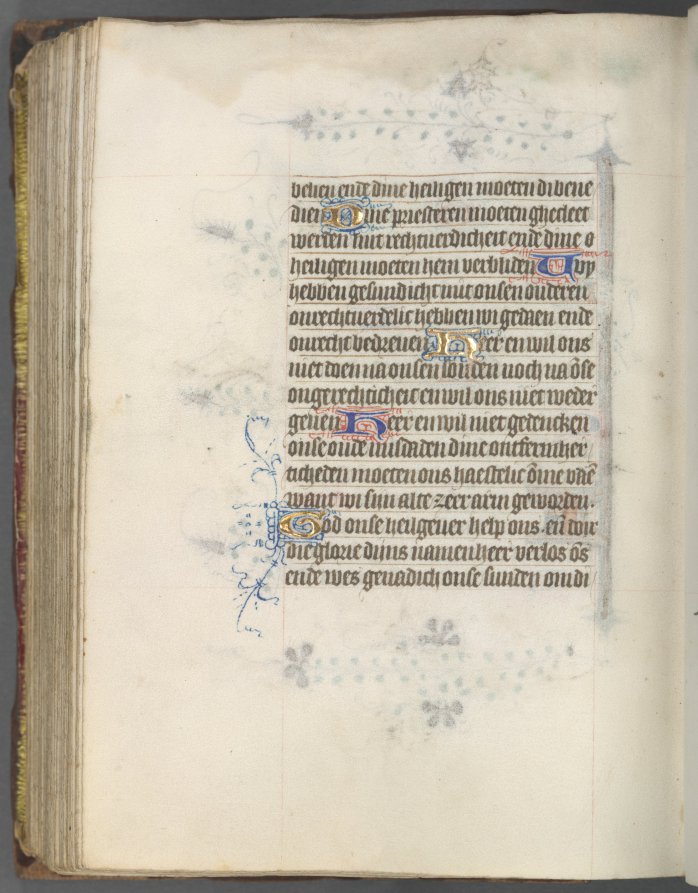 velien ende dine heiligen moeten di bene
dien Dine priesteren moeten ghecleet
werden mit rechtuerdicheit ende dine
heiligen moeten hem verbliden Wy
hebben gesundicht mit onsen ouderen
onrechtuerdelic hebben wi gedaen ende
onrecht bedreuen Heer en wil ons
niet doen na onsen sonden noch na ōse
ongerechticheit en wil ons niet weder
geuen Heer en wil niet gedencken
onse oude misdaden dine ontfermher
ticheden moeten ons haestelic
want wi sijn alte zeer arm geworden.
God onse heilgeuer help ons en̄ doir
die glorie dijns namen heer verlos ōs
ende wes genadich onse sunden om di